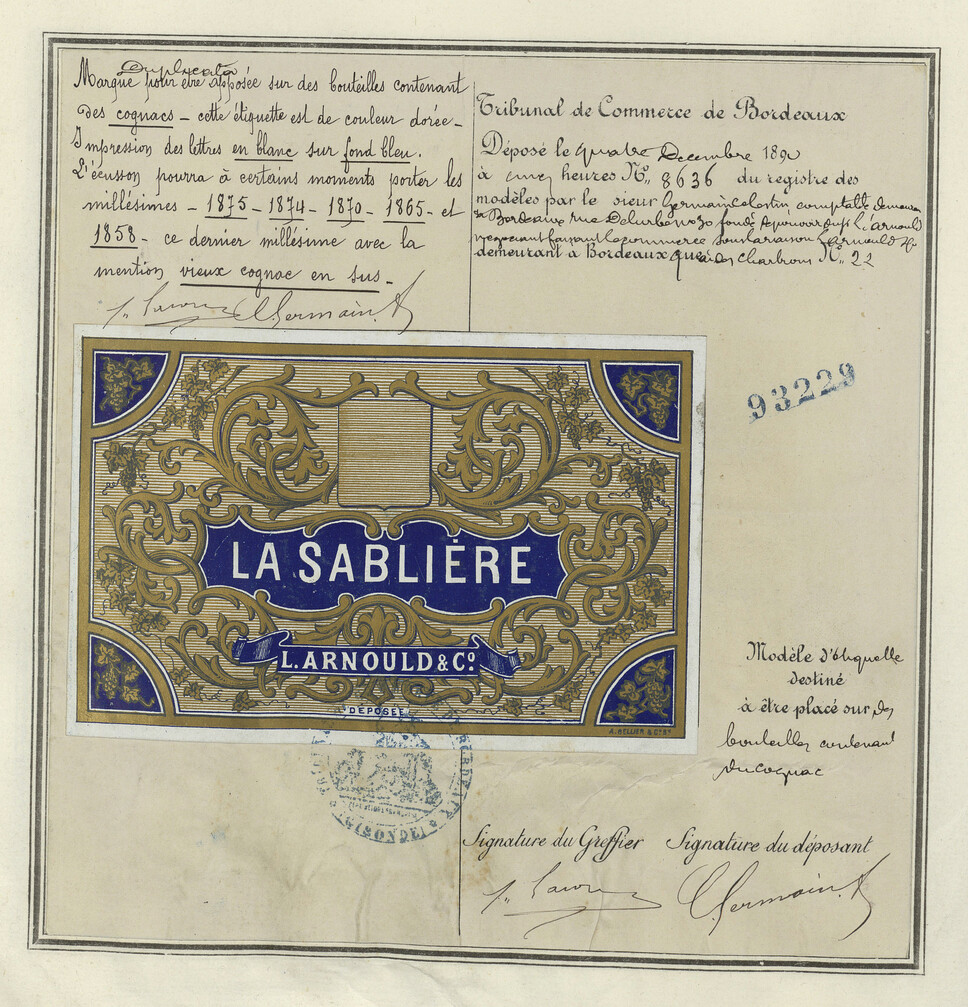 Duplicata
Marque pour être apposée sur des bouteilles contenant
des cognacs – cette étiquette est de couleur dorée –
Impression des lettres en blanc sur fond bleu.
L'écusson pourra à certains moments porter les
millésimes – 1875 – 1874 – 1870 – 1865 – et
1858 – ce dernier millésime avec la
mention vieux cognac en sus. –
Germain
Tribunal de Commerce de Bordeaux
Déposé le quatre Decembre 1890
à cinq heures N° 8636 du registre des
modèles par le sieur Germain Celestin comptable demeurant
à Bordeaux rue fondé de pouvoir du sr L. Arnould
negociant faisant le commerce sous la raison L. Arnould & Cie
demeurant à Bordeaux quai des Chartrons N° 22
93229
LA SABLIÈRE
L. ARNOULD & Co.
DÉPOSÉE
Modèle d'étiquette
destiné
à être placé sur des
bouteilles contenant
du cognac
(GIRONDE)
Signature du Greffier Signature du déposant
Germain